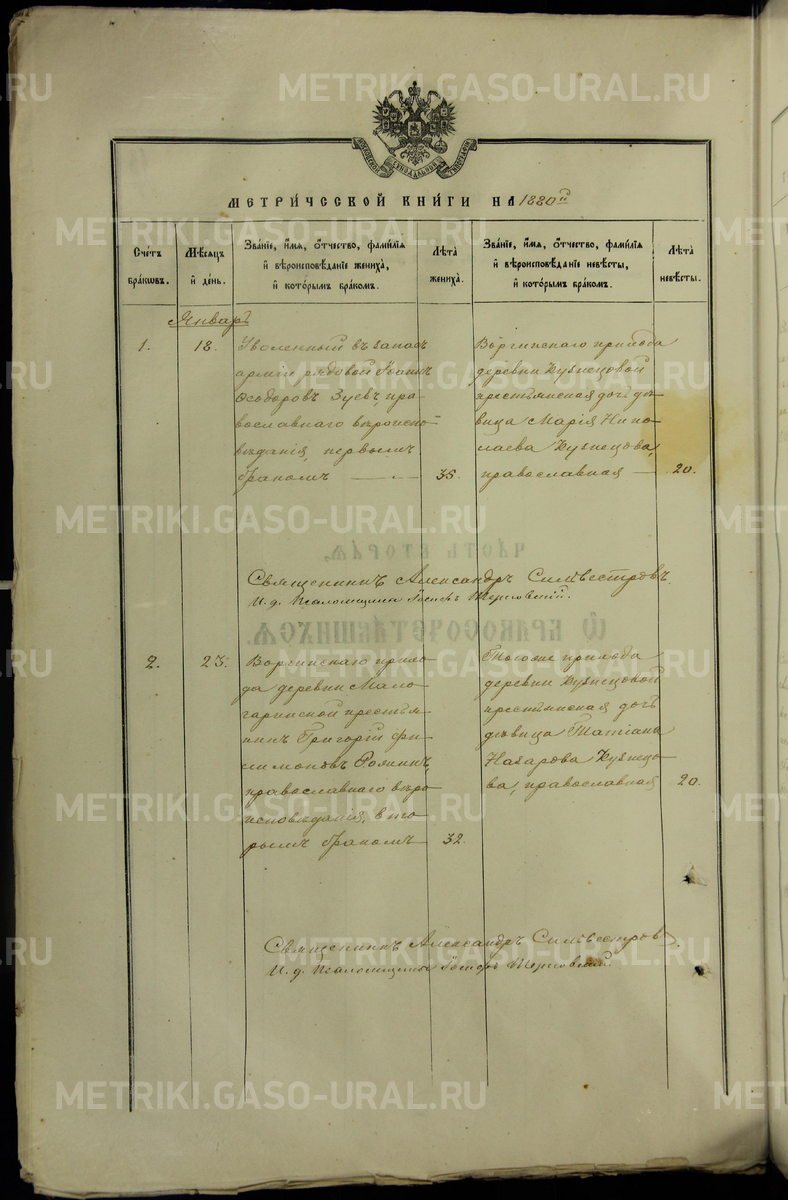 МОСКОВСКОЙ СѴНОДАЛЬНОЙ ТИПОГРАФІИ
МЕТРИ́ЧЕСКОЙ КНИ́ГИ НА 1880й
Сче́тъ бра́кωвъ.
Мѣ́сяцъ и҆ де́нь.
Зва́нїе, и҆́мя, ѻ҆́тчество, фами́лїя
и҆ вѣроисповѣ́данїе жениха̀,
и҆ кото́рымъ бра́комъ.
Лѣ́та жениха̀.
Зва́нїе, и҆́мя, ѻ҆́тчество, фами́лїя
и҆ вѣроисповѣ́данїе невѣ́сты,
и҆ кото́рымъ бра́комъ.
Лѣ́та невѣ́сты.
Январь
1.
18.
Уволенный въ запасъ
арміи рядовой Іоаннъ
Ѳеодоровъ Зуевъ, пра-
вославнаго вѣроиспо-
вѣданія, первымъ
бракомъ
35.
прихода
деревни Кузнецовой
крестьянская дочь дѣ-
вица Марія Нико-
лаева Кузнецова,
православная
20.
Священникъ Александръ Сильвестровъ.
И. д. Псаломщика Іосифъ
2.
23.
прихо-
да деревни Мало-
гаринской крестья-
нинъ Григорій Фи-
лимоновъ
православнаго вѣро-
исповѣданія, вто-
рымъ бракомъ
32.
Тогоже прихода
деревни Кузнецовой
крестьянская дочь
дѣвица Татіана
Назарова Кузнецо-
ва, православная
20.
Священникъ Александръ Сильвестровъ.
И. д. Псаломщика Іосифъ
METRIKI.GASO-URAL.RU